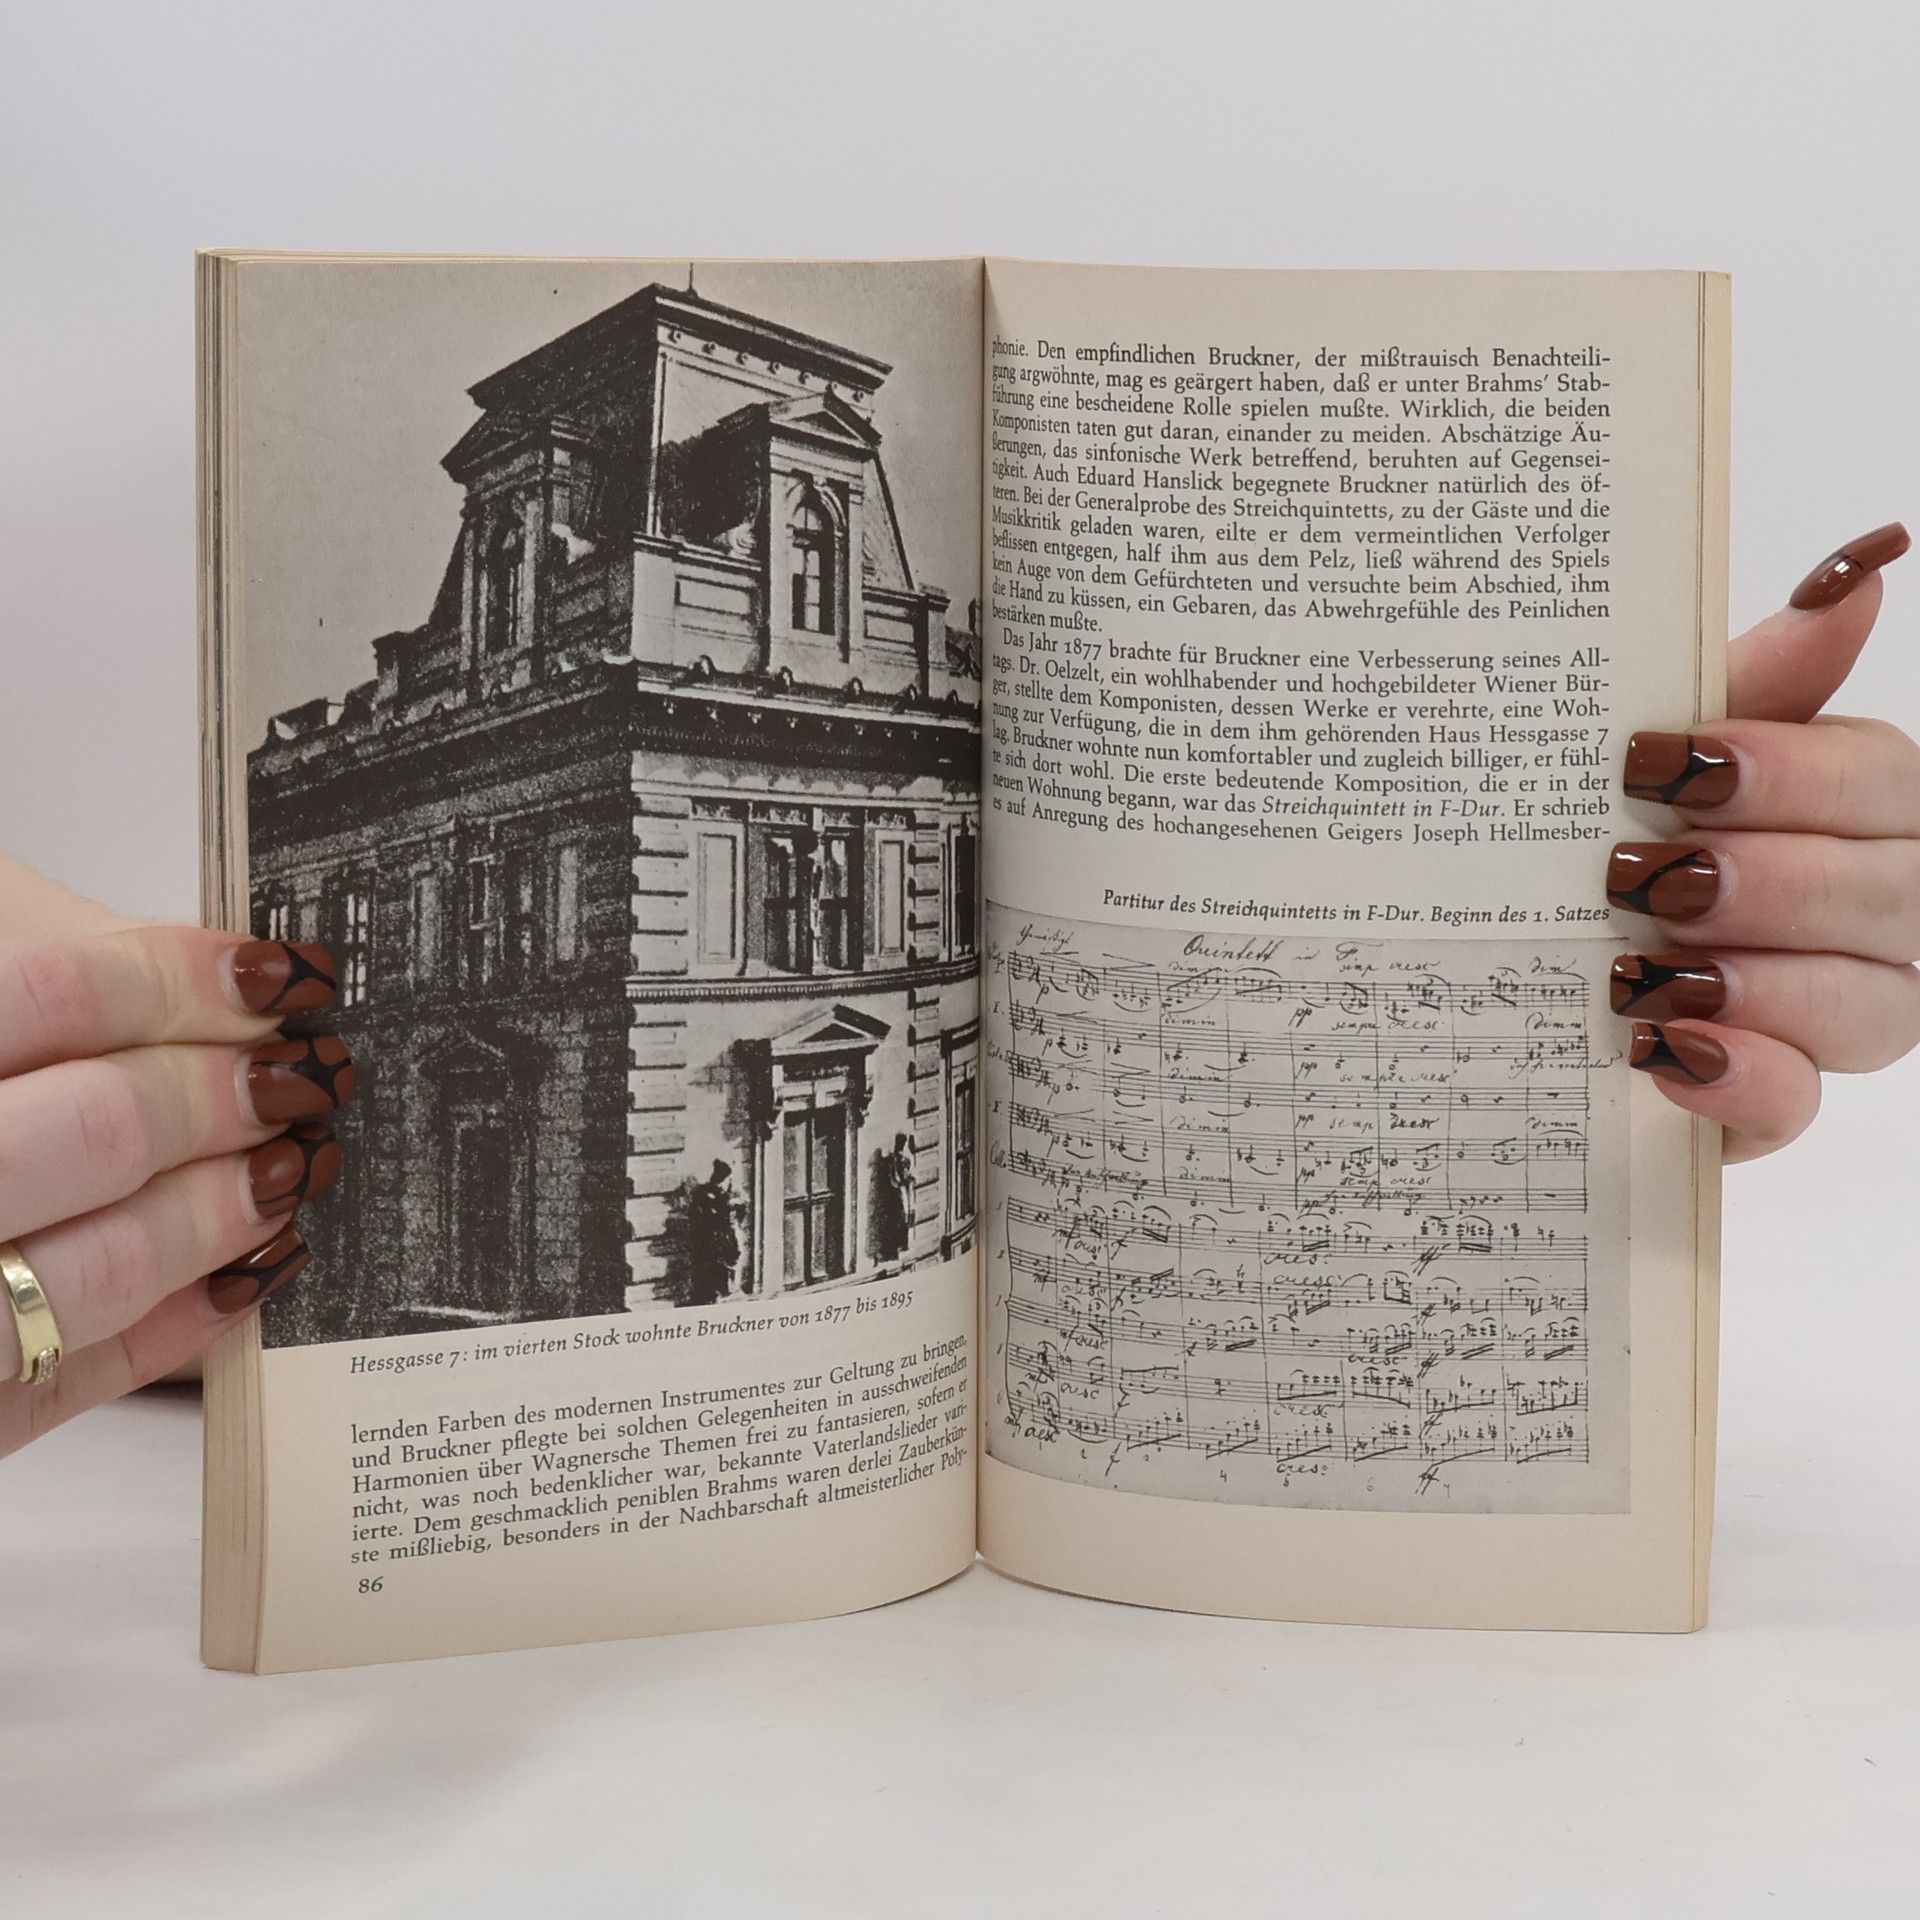 Hessgasse 7: im vierten Stock wohnte Bruckner von 1877 bis 1895
lernden Farben des modernen Instrumentes zur Geltung zu bringen,
und Bruckner pflegte bei solchen Gelegenheiten in ausschweifenden
Harmonien über Wagnersche Themen frei zu fantasieren, sofern er
nicht, was noch bedenklicher war, bekannte Vaterlandslieder vari-
ierte. Dem geschmacklich peniblen Brahms waren derlei Zauberkün-
ste mißliebig, besonders in der Nachbarschaft altmeisterlicher Poly-
86
phonie. Den empfindlichen Bruckner, der mißtrauisch Benachteili-
gung argwöhnte, mag es geärgert haben, daß er unter Brahms' Stab-
führung eine bescheidene Rolle spielen mußte. Wirklich, die beiden
Komponisten taten gut daran, einander zu meiden. Abschätzige Äu-
ßerungen, das sinfonische Werk betreffend, beruhten auf Gegensei-
tigkeit. Auch Eduard Hanslick begegnete Bruckner natürlich des öf-
teren. Bei der Generalprobe des Streichquintetts, zu der Gäste und die
Musikkritik geladen waren, eilte er dem vermeintlichen Verfolger
beflissen entgegen, half ihm aus dem Pelz, ließ während des Spiels
kein Auge von dem Gefürchteten und versuchte beim Abschied, ihm
die Hand zu küssen, ein Gebaren, das Abwehrgefühle des Peinlichen
bestärken mußte.
Das Jahr 1877 brachte für Bruckner eine Verbesserung seines All-
tags. Dr. Oelzelt, ein wohlhabender und hochgebildeter Wiener Bür-
ger, stellte dem Komponisten, dessen Werke er verehrte, eine Woh-
nung zur Verfügung, die in dem ihm gehörenden Haus Hessgasse 7
lag. Bruckner wohnte nun komfortabler und zugleich billiger, er fühl-
te sich dort wohl. Die erste bedeutende Komposition, die er in der
neuen Wohnung begann, war das Streichquintett in F-Dur. Er schrieb
es auf Anregung des hochangesehenen Geigers Joseph Hellmesber-
Partitur des Streichquintetts in F-Dur. Beginn des 1. Satzes
Quintett in F
dim semp cresc dim
p
dimin pp sempre cresc dimin
p dimin pp sempre cresc
dimin pp semp cresc dimin
dimin pp semp cresc
mf cresc f cresc ff
mf cresc cresc
mf cresc cresc ff
cresc cresc
cresc f cresc ff
2 3 4 5 6 7